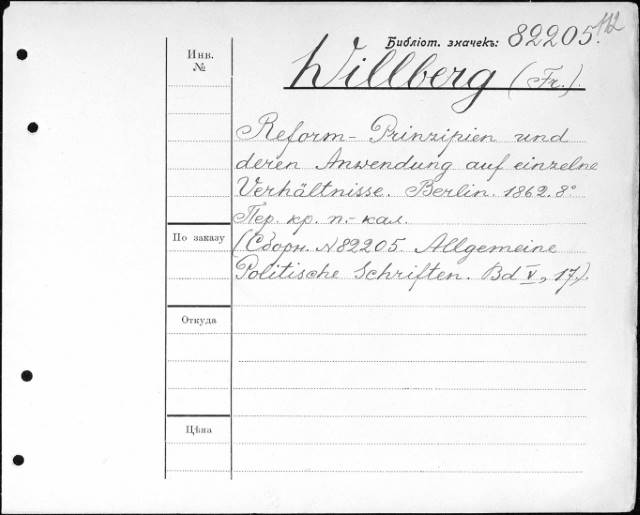 Библіот. значекъ: 82205. 112
Инв.
№
Willberg (Fr.).
Reform-Prinzipien und
deren Anwendung auf einzelne
Verhältnisse. Berlin. 1862. 8°
Пер. кр. п.-кал.
По заказу
(Сборн. N 82205. Allgemeine
Politische Schriften. Bd V, 17).
Откуда
Цѣна